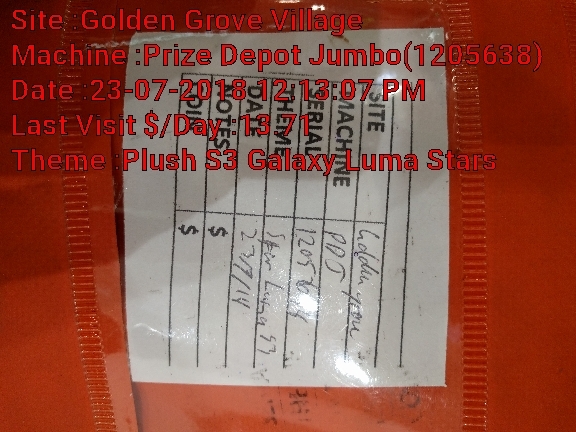 Site :Golden Grove Village
Machine :Prize Depot Jumbo(1205638)
Date :23-07-2018 12:13:07 PM
Last Visit $/Day :13.71
Theme :Plush S3 Galaxy Luma Stars
SITE Golden
MACHINE PDJ
SERIAL
THEME Luma S3
DATE 23/7/14
NOTES $
$